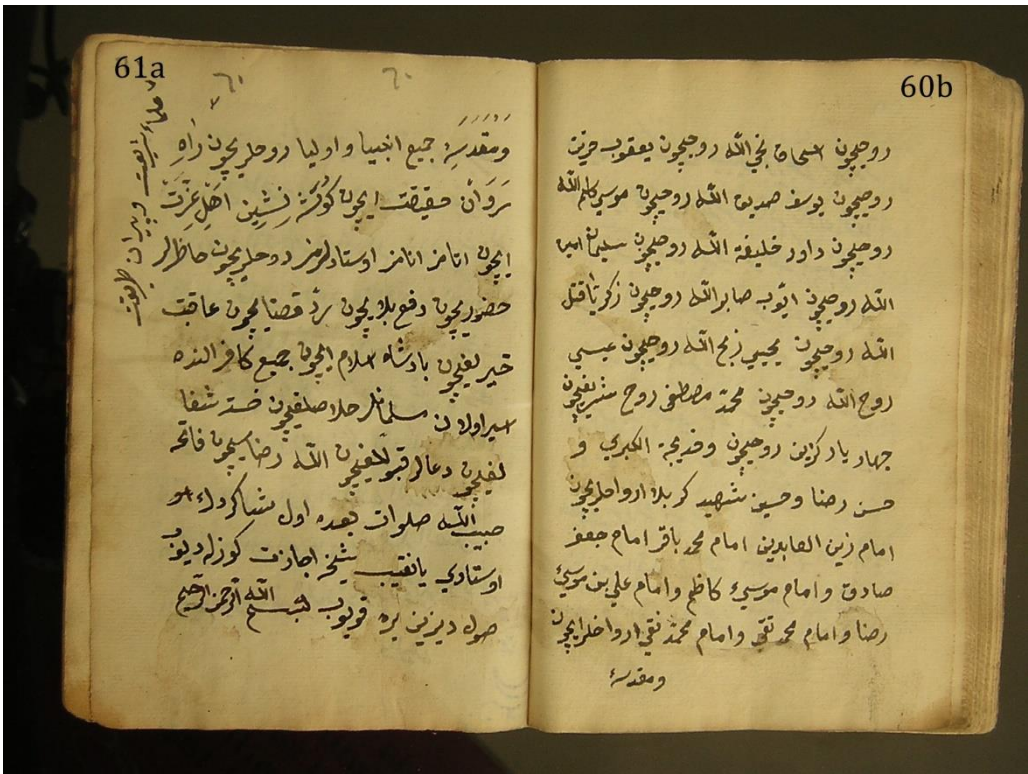 60b
روحیچون اسحاق نجی الله روحیچون یعقوب حزین
روحیچون یوسف صدیق الله روحیچون موسی کلیم الله
روحیچون داود خلیفة الله روحیچون سلیمان امین
الله روحیچون ایوب صابر الله روحیچون زکریا قتل
الله روحیچون یحیی ذبح الله روحیچون عیسی
روح الله روحیچون محمد مصطفی روح شریفیچون
جهار یار کزین روحیچون و خدیجة الکبری و
حسن رضا و حسین شهید کربلا ارواحلریچون
امام زین العابدین امام محمد باقر امام جعفر
صادق و امام موسیء کاظم و امام علی بن موسیء
رضا و امام محمد تقی و امام محمد نقی ارواحلرایچون
ومقدسهٔ
61a
٦٠
٦٠
ومقدسهٔ جمیع انبیا و اولیا روحلریچون راه
روان حقیقت ایچون کوشه نشین اهل عزت
ایچون اتامز انامز اوستادلرمز روحلریچون حاظرلر
حضوریچون دفع بلا یچون رد قضا یچون عاقبت
خیرلغیچون پادشاه اسلام ایچون جمیع کافر النده
اسیر اولان مسلمانلر خلاصلیغیچون خسته شفا
لغیچون دعالر قبوللغیچون الله رضاسیچون فاتحه
حبیب الله صلوات بعده اول شاکرد
اوستادی یا نقیب شیخه اجازت کوزله دیوب
صول دیزین یره قویوب بسم الله الرحمن الرحیم
علماء شریعت و پیران طریقت